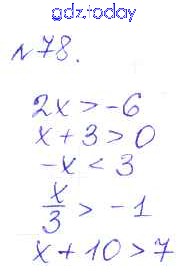 gdz.today
№78.
2x > -6
x + 3 > 0
-x < 3
x/3 > -1
x + 10 > 7